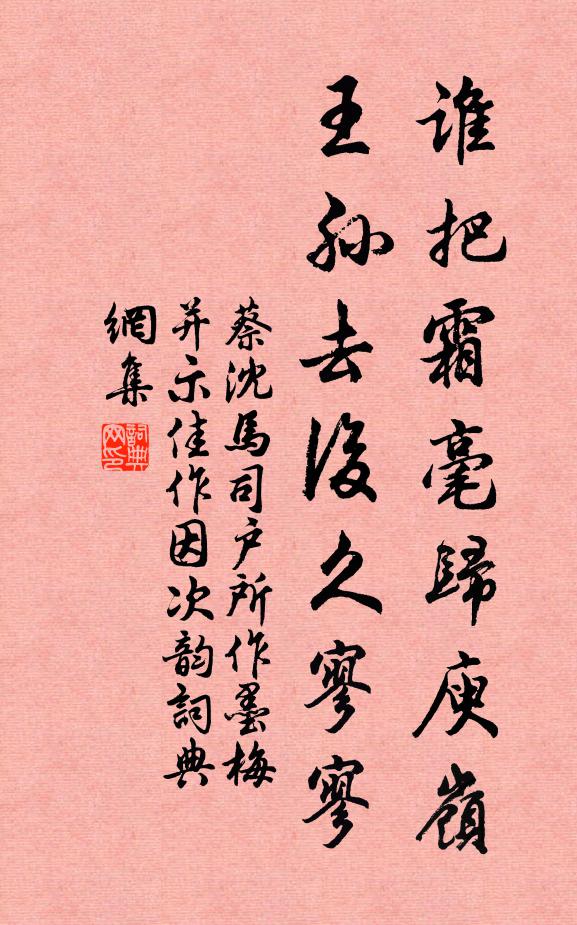 谁把霜毫歸庾嶺
王孙去後久寥寥
蔡沈馬司户所作墨梅
并示佳作因次韵詞典
網集
詞典
网印